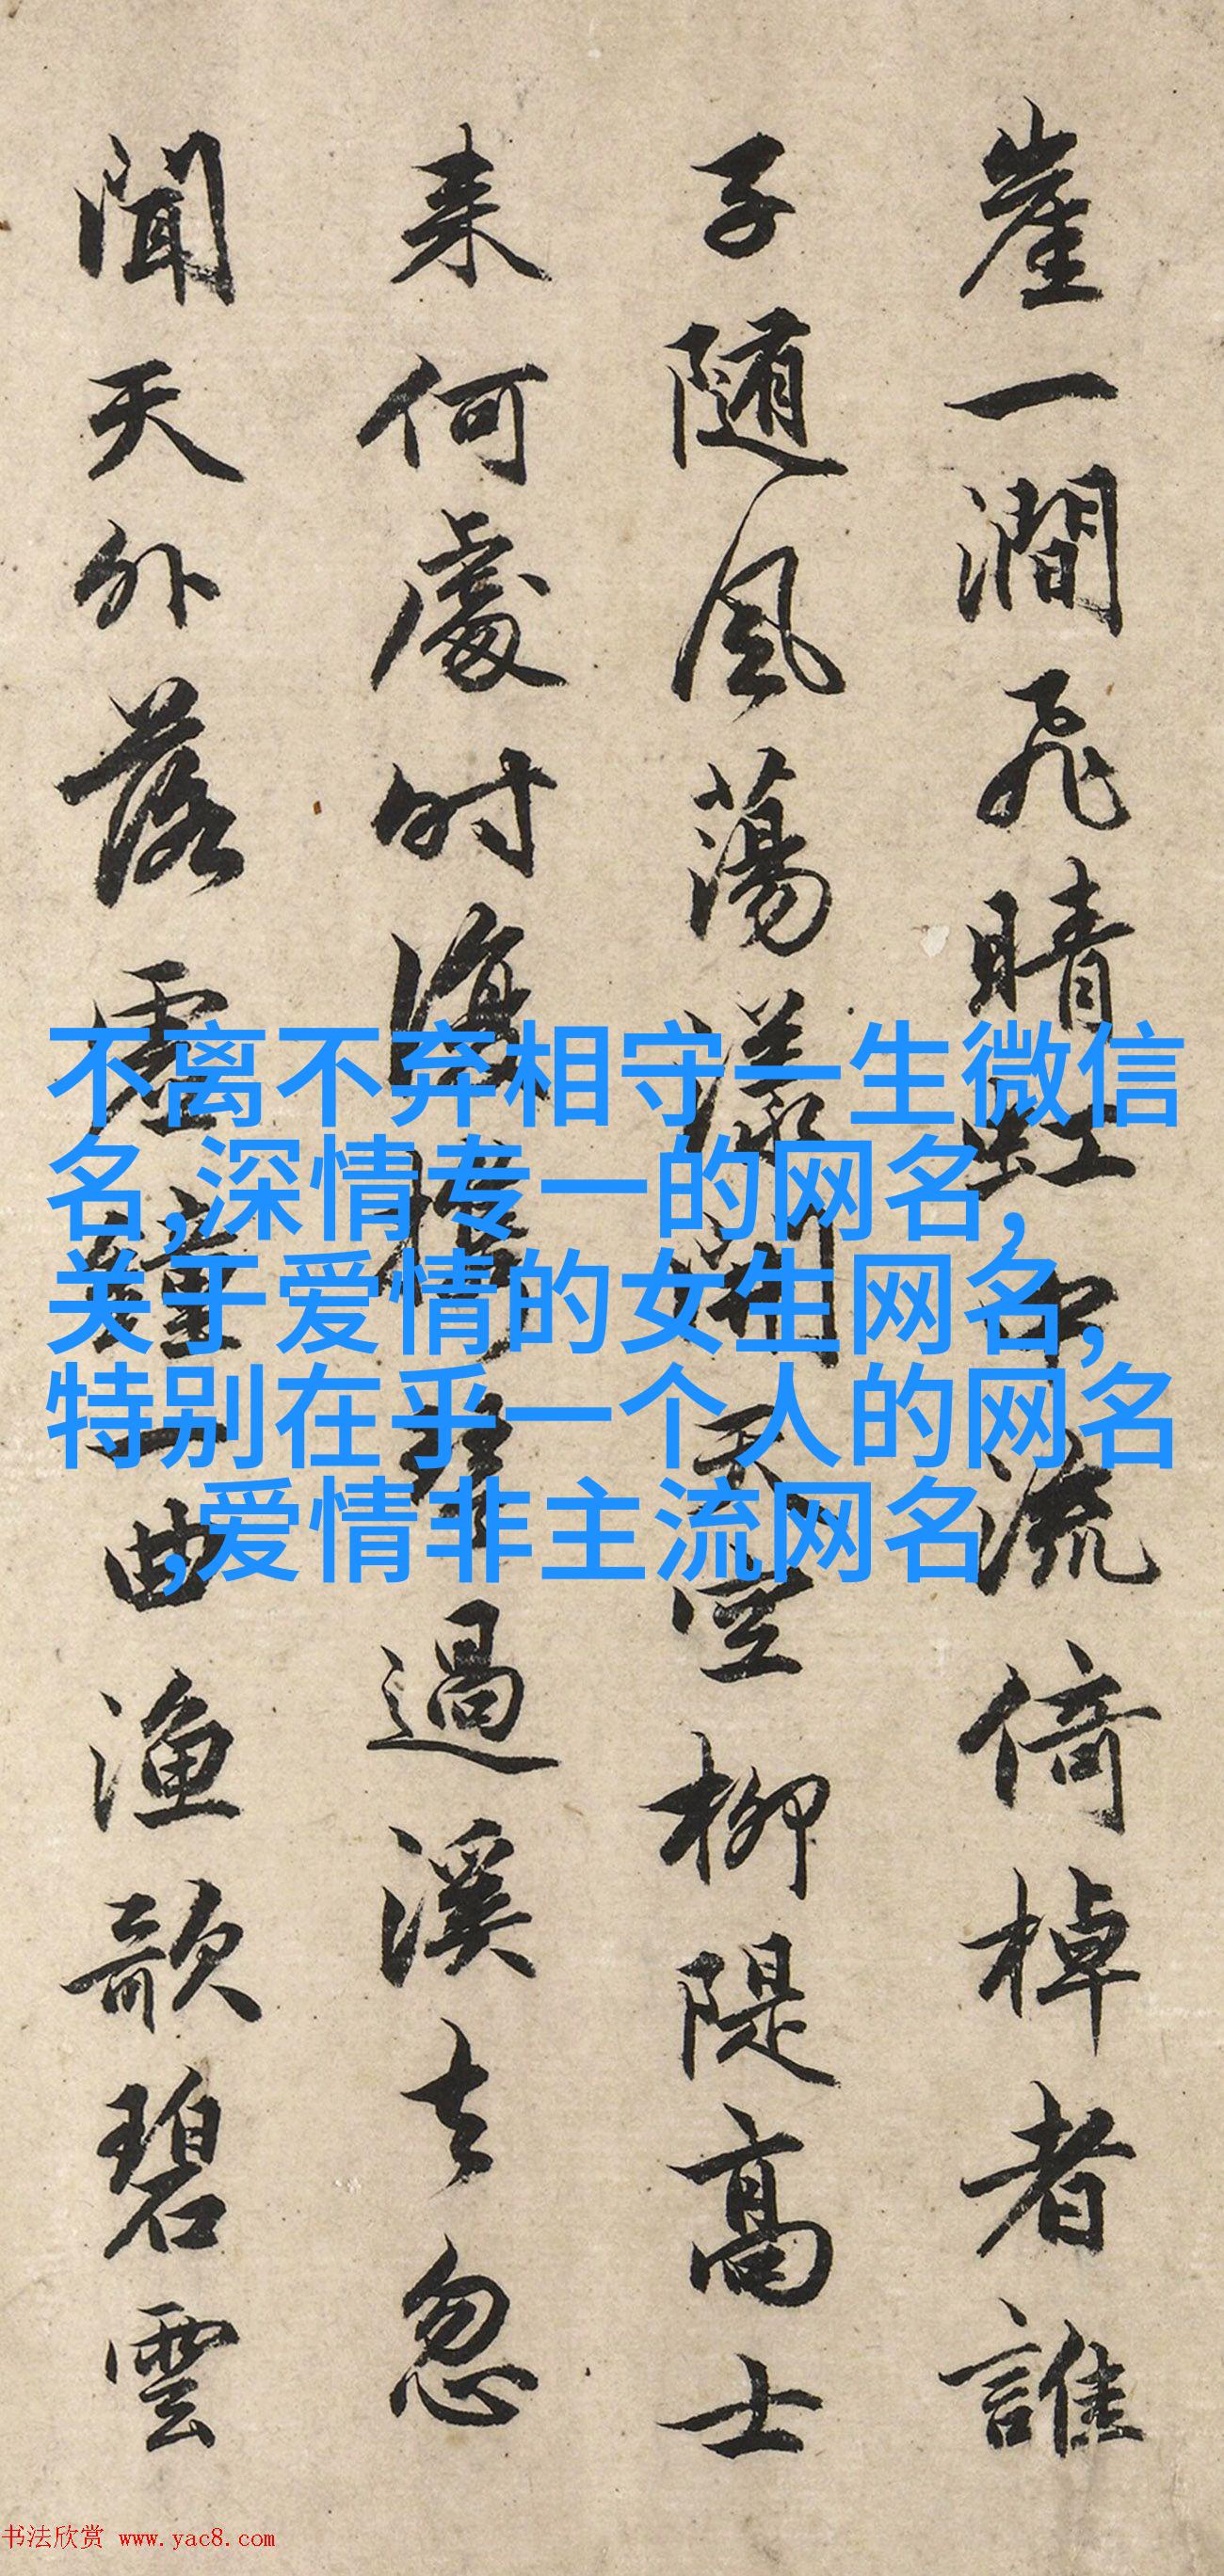 崖一澗飛晴虹中流倚棹者誰
子随風蕩漾天空柳隄高士
来何處時復攜琴過溪去忽
聞天外落鐘一曲漁歌碧雲
不离不弃相守一生微信
名,深情专一的网名,
关于爱情的女生网名,
特别在乎一个人的网名
,爱情非主流网名
书法欣赏 www.yac8.com